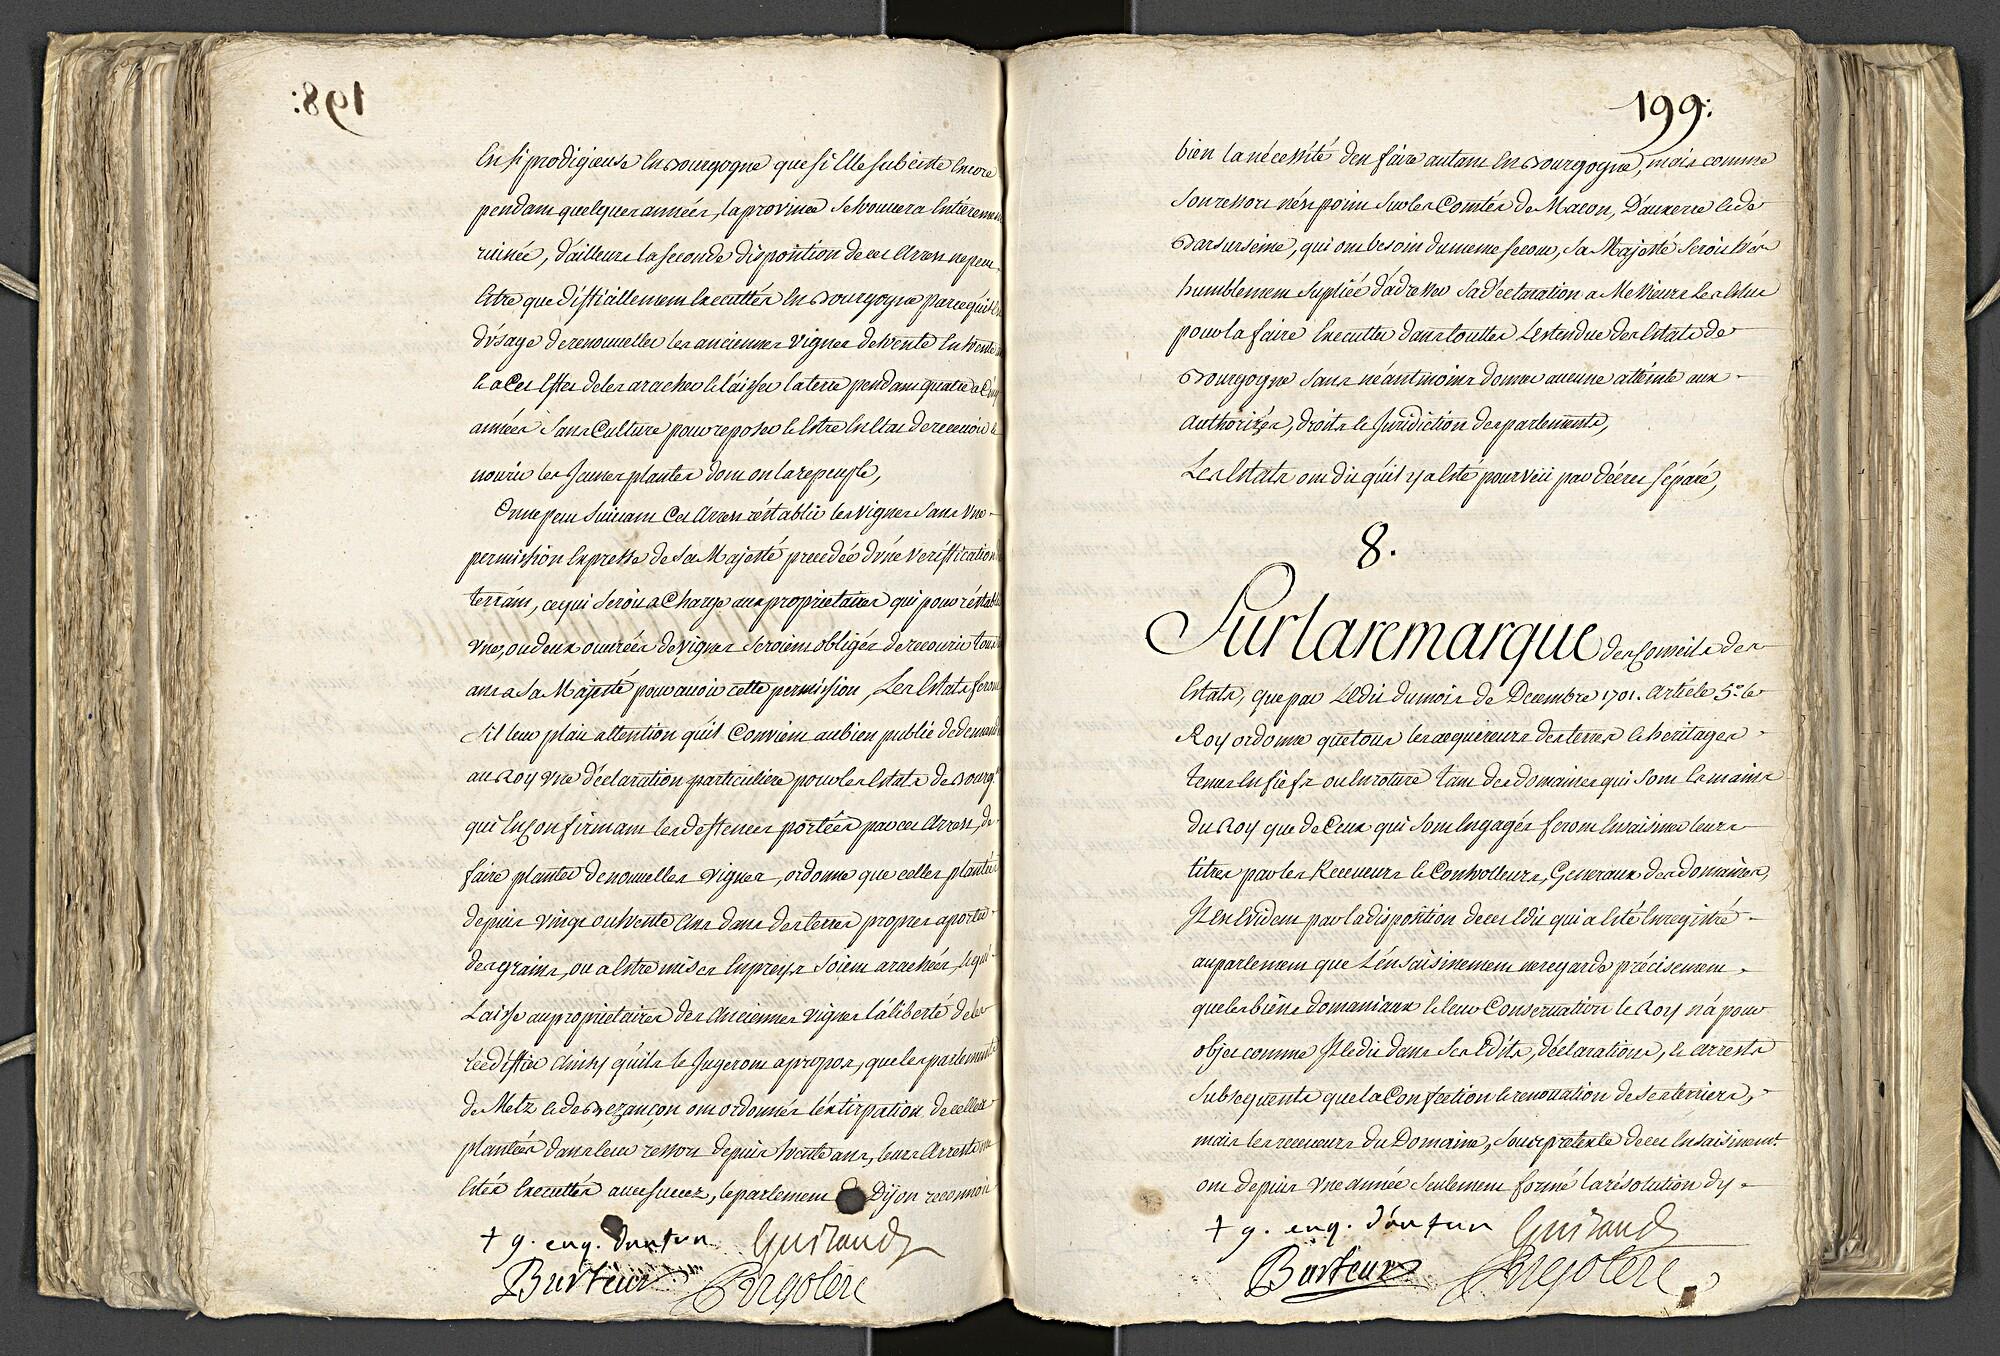 198:
En si prodigieuse En Bourgogne que si Elle subciste Encore
pendant quelques années, la province se trouvera Entieremen
ruinée, d'ailleurs la seconde disposition de cet Arrest ne peut
Estre que difficillement Executtée En Bourgogne parce qu'il
d'usage de renouveller les anciennes vignes de trente En trente
a cet Effet de les aracher et laisser la terre pendant quatre a Cinq
années sans Culture pour reposer et Estre En Etat de recevoir
nourir les Jeunes plantes dont on la repeuple,
On ne peut suivant Cet Arrest rétablir les vignes sans vne
permission Expresse de sa Majesté precedée d'vne verification
terrain, ce qui seroit a Charge aux proprietaires qui pour rétabl
vne, ou deux ouvrées de vignes seroient obligés de recourir tous
ans a sa Majesté pour avoir cette permission, Les Estats feront
s'il leur plait attention qu'il Convient au bien public de demand
au Roy vne déclaration particuliere pour les Estats de Bourg.
qui En Confirmant les deffences portées par cet Arrest, de
faire planter de nouvelles vignes, ordonne que celles plantées
depuis vingt ou trente Ans dans des terres propres a porter
des grains, ou a Estre mises En preys soient arachées, et qui
Laisse au proprietaires des Anciennes vignes la liberté de les
réediffier Ainsy qu'ils le Jugeront a propos, que les parlements
de Metz et de Bezançon, ont ordonnés l'extirpation de celles
plantées dans leur ressort depuis trente ans, leurs Arrests ont
Estés Executtés avec succez, le parlement Dijon reconnoit
+ g. evq. d'autun Guiraud
Burteur Pergolere
199:
bien la nécessité d'en faire autant En Bourgogne, mais comme
son ressort n'est point sur les Comtés de Macon, D'auxerre et de
Barsurseine, qui ont besoin du meme secour, sa Majesté seroit trés
humblement supliée d'adresser sa déclaration a Messieurs Les Elus
pour la faire Executter dans touttes L'estendue des Estats de
Bourgogne sans néantmoins donner aucune atteinte aux
authorités, droits et Juridiction des parlements,
Les Estats ont dit qu'il y a Esté pourveu par décret séparé,
8.
Sur la remarque des Conseils des
Estats, que par L'Edit du mois de Decembre 1701. article 5.e le
Roy ordonne que tous les acquereurs des terres et heritages
tenus En fiefs ou En roture tant des domaines qui sont Es mains
du Roy que de Ceux qui sont Engagés feront Ensaisiner leurs
titres par les Receveurs et Controlleurs, Generaux des domaines,
Il est Evident par la disposition de cet Edit qui a Esté Enregistré
au parlement que L'ensaisinement ne regarde précisement
que les biens domaniaux et leur Conservation le Roy n'a pour
objet comme Il le dit dans ses Edits, déclarations, et arrests
subsequents que la Confection et renovation de ses terriers,
mais les receveurs du Domaine, sous pretexte de cet Ensaisinemt
ont depuis vne année seulement formé la résolution d'y
+ g. evq. d'autun Guiraud
Burteur Pergolere